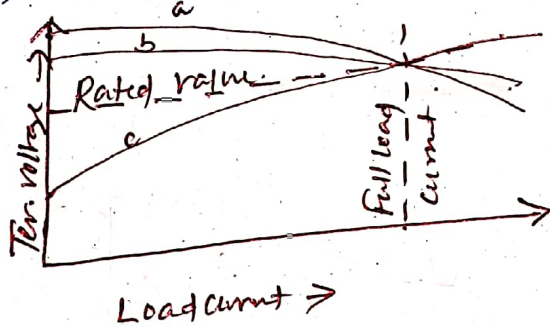 a
b
Rated value
c
Ter. voltage
Full load
current
Load current →